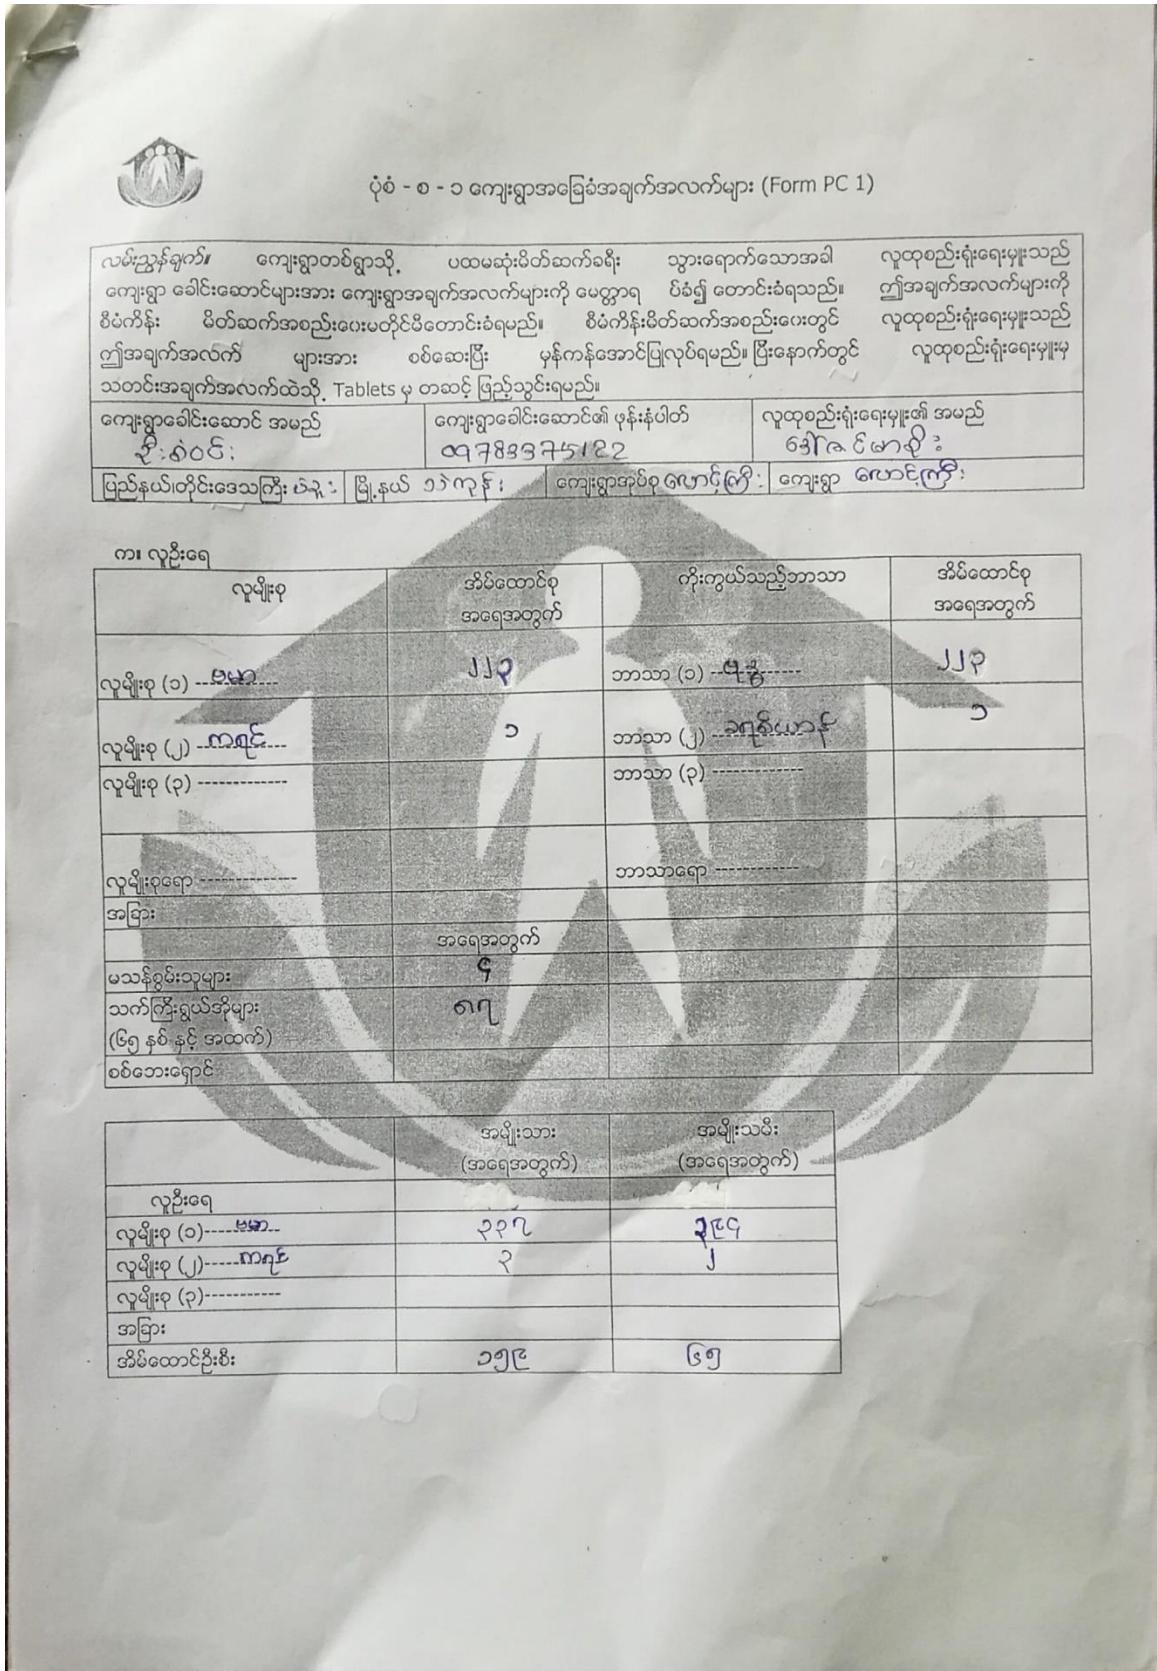 ပုံစံ - စ - ၁ ကျေးရွာအခြေခံအချက်အလက်များ (Form PC 1)
လမ်းညွှန်ချက်။ ကျေးရွာတစ်ရွာသို့ ပထမဆုံးမိတ်ဆက်ခရီး သွားရောက်သောအခါ လူထုစည်းရုံးရေးမှူးသည်
ကျေးရွာ ခေါင်းဆောင်များအား ကျေးရွာအချက်အလက်များကို မေတ္တာရ ပ်ခံ၍ တောင်းခံရသည်။ ဤအချက်အလက်များကို
စီမံကိန်း မိတ်ဆက်အစည်းဝေးမတိုင်မီတောင်းခံရမည်။ စီမံကိန်းမိတ်ဆက်အစည်းဝေးတွင် လူထုစည်းရုံးရေးမှူးသည်
ဤအချက်အလက် များအား စစ်ဆေးပြီး မှန်ကန်အောင်ပြုလုပ်ရမည်။ ပြီးနောက်တွင် လူထုစည်းရုံးရေးမှူးမှ
သတင်းအချက်အလက်ထဲသို့ Tablets မှ တဆင့် ဖြည့်သွင်းရမည်။
ကျေးရွာခေါင်းဆောင် အမည် ကျေးရွာခေါင်းဆောင်၏ ဖုန်းနံပါတ် လူထုစည်းရုံးရေးမှူး၏ အမည်
ဦး 09783375122 ဒေါ်ဇင်မာစိုး
ပြည်နယ်/တိုင်းဒေသကြီး ပဲခူး မြို့နယ် ကျေးရွာအုပ်စု လောင်းကြီး ကျေးရွာ လောင်းကြီး
က။ လူဦးရေ
လူမျိုးစု အိမ်ထောင်စု အရေအတွက် ကိုးကွယ်သည့်ဘာသာ အိမ်ထောင်စု အရေအတွက်
လူမျိုးစု (၁) ဗမာ ၂၂၃ ဘာသာ (၁) ဗုဒ္ဓ ၂၂၃
လူမျိုးစု (၂) ကရင် ၁ ဘာသာ (၂) ခရစ်ယာန် ၁
လူမျိုးစု (၃) ------------- ဘာသာ (၃) -------------
လူမျိုးစုရော -------------- ဘာသာရော ------------
အခြား
အရေအတွက်
မသန်စွမ်းသူများ ၄
သက်ကြီးရွယ်အိုများ ၈၇
(၆၅ နှစ် နှင့် အထက်)
စစ်ဘေးရှောင်
အမျိုးသား အမျိုးသမီး
(အရေအတွက်) (အရေအတွက်)
လူဦးရေ
လူမျိုးစု (၁) ဗမာ ၃၃၇ ၃၉၄
လူမျိုးစု (၂) ကရင် ၃ ၂
လူမျိုးစု (၃)-----------
အခြား
အိမ်ထောင်ဦးစီး ၁၅၉ ၆၅